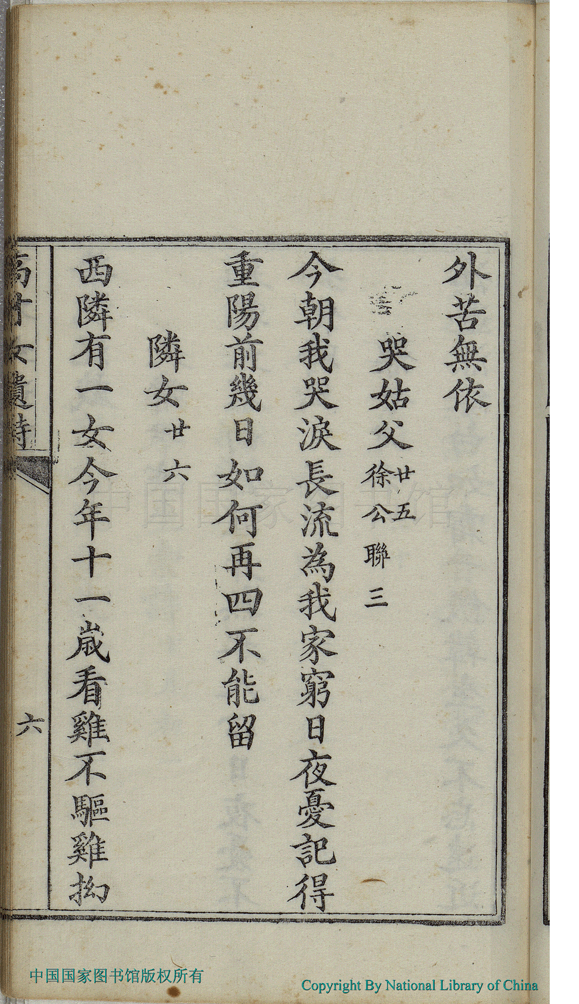 外苦無依
哭姑父廿五徐公聯三
今朝我哭淚長流為我家窮日夜憂記得
重陽前幾日如何再四不能留
隣女廿六
西隣有一女今年十一歲看雞不驅雞拗
女遺詩
六
中国国家图书馆
中国国家图书馆版权所有
Copyright By National Library of China